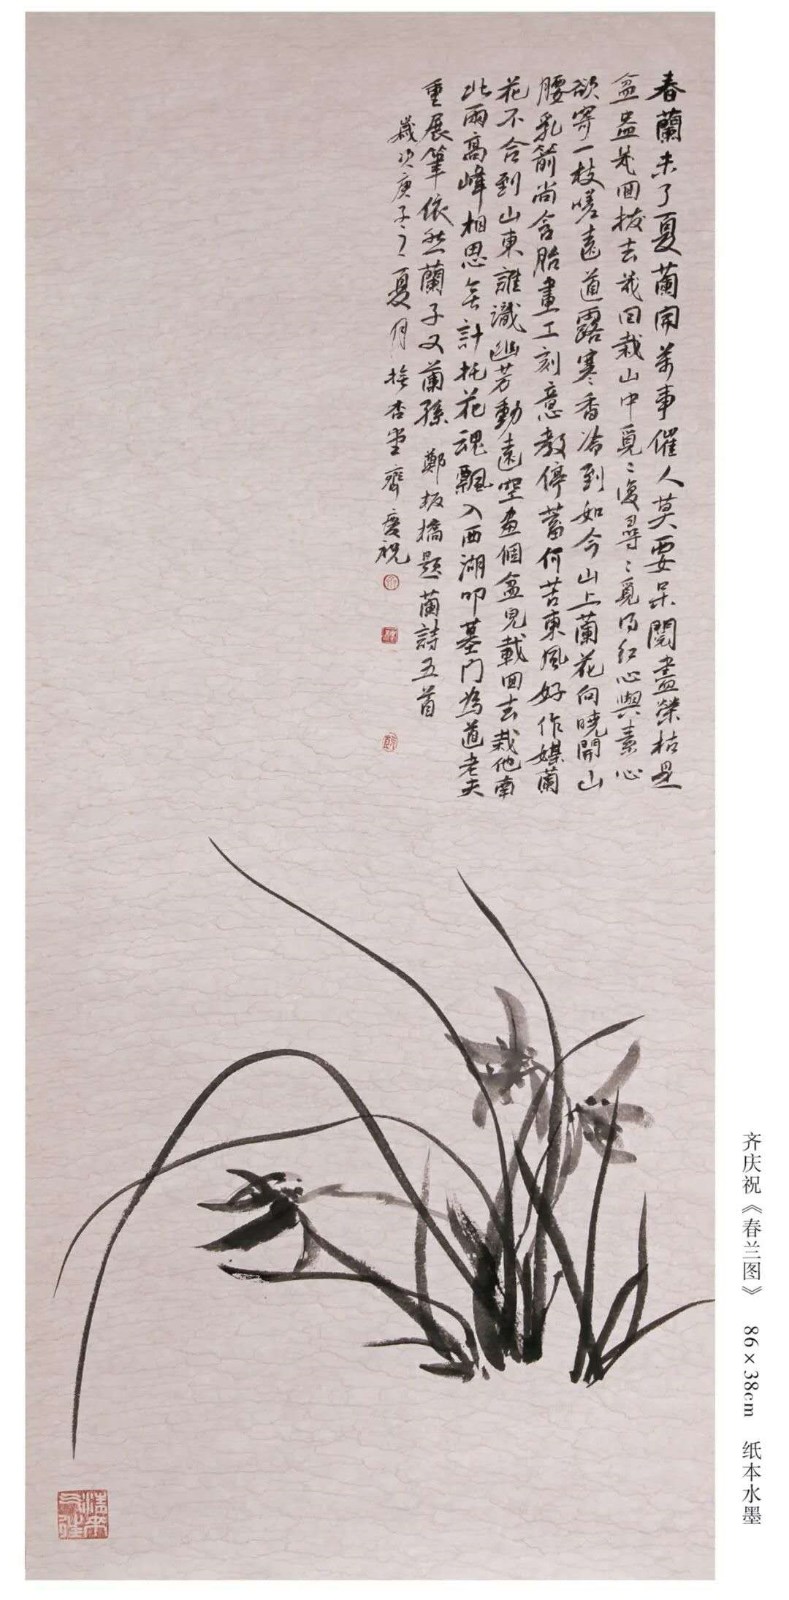 春蘭未了夏蘭開萬事催人莫要呆閱盡榮枯是
盆盎幾回拔去幾回栽山中覓〻復尋〻覓得紅心與素心
欲寄一枝嗟遠道露寒香冷到如今山上蘭花向曉開山
腰乳箭尚含胎畫工刻意教停蓄何苦東風好作媒蘭
花不合到山東誰識幽芳動遠空畫個盆兒載回去栽他南
北兩高峰相思無計托花魂飄入西湖叩墓門為道老夫
重展筆依然蘭子又蘭孫 鄭板橋題蘭詩五首
歲次庚子之夏月於杏堂齊慶祝
齐庆祝《春兰图》 86×38cm 纸本水墨